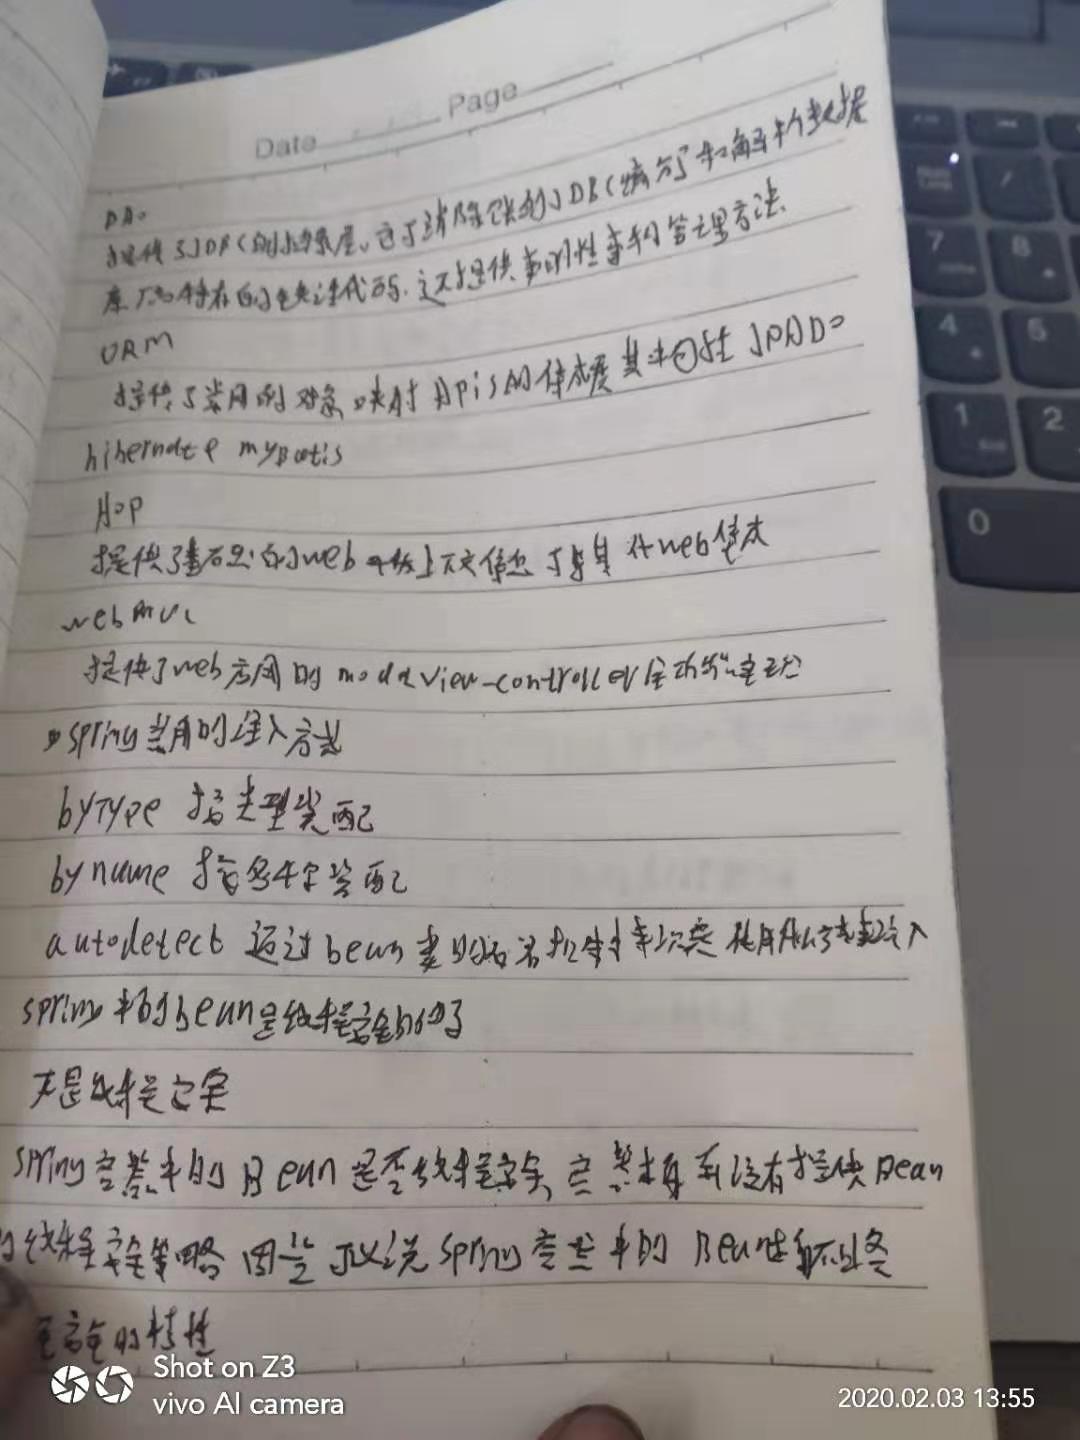 Date Page
DAO
提供了JDBC的抽象层。它可消除冗长的JDBC编码和解析数据
库厂商特有的错误代码.这不提供声明性事务管理方法.
ORM
提供了常用的对象映射APis的集成层其中包括JPA JDO
hibernate mybatis
AOP
提供了基础的web 上下文信息 web
web MVC
提供了web应用的modelview-controller全功能实现
spring常用的注入方式
byType 指类型装配
byname 指名称装配
autodetect 通过bean类的 使用什么方式注入
spring中的bean是线程安全的吗
不是线程安全
spring容器中的Bean是否线程安全 容器本身并没有提供Bean
的线程安全策略 因此可以说spring容器中的Bean
安全的特性
Shot on Z3
vivo AI camera
2020.02.03 13:55
7
8
4
5
1
2
0